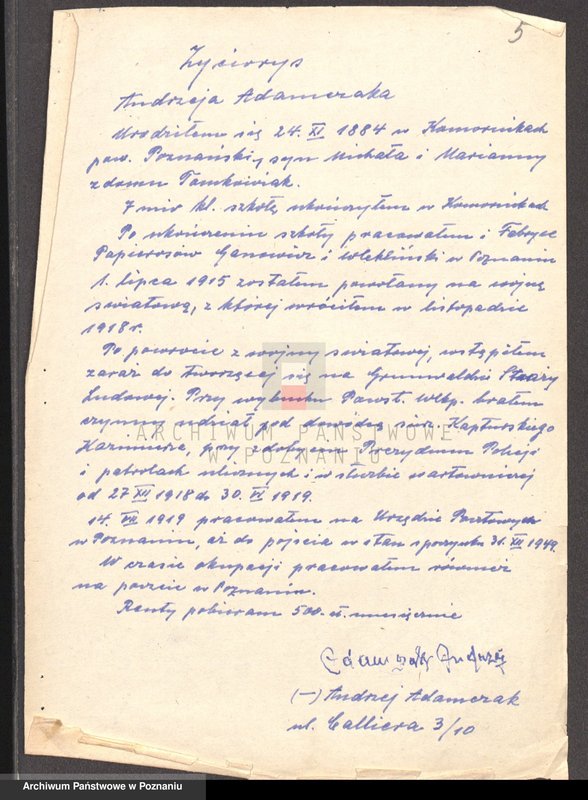 5
Życiorys
Andrzeja Adamczaka
Urodziłem się 24. XI. 1884 w Komornikach
pow. Poznański, syn Michała i Marianny
z domu Tomkowiak.
7 mio kl. szkołę ukończyłem w Komornikach
Po ukończeniu szkoły pracowałem i Fabryce
Papierosów Ganowicz i Wlekliński w Poznaniu
1. lipca 1915 zostałem powołany na wojnę
światową, z której wróciłem w listopadzie
1918 r.
Po powrocie z wojny światowej, wstąpiłem
zaraz do tworzącej się na Grunwaldzie Straży
Ludowej. Przy wybuchu Powst. Wlkp. brałem
czynny udział pod dowódcą Kapturskiego
Kazimierza, przy zdobyciu Prezydium Policji
i patrolach ulicznych i w służbie wartowniczej
od 27 XII 1918 do 30. VI 1919.
14. VII 1919 pracowałem na Urzędzie Pocztowych
w Poznaniu, aż do pójścia w stan spoczynku 31. XII 1949.
W czasie okupacji pracowałem również
na poczcie w Poznaniu.
Renty pobieram 500. zł. miesięcznie
Adamczak Andrzej
(-) Andrzej Adamczak
ul. Calliera 3/10
ARCHIWUM PAŃSTWOWE
W POZNANIU
Archiwum Państwowe w Poznaniu